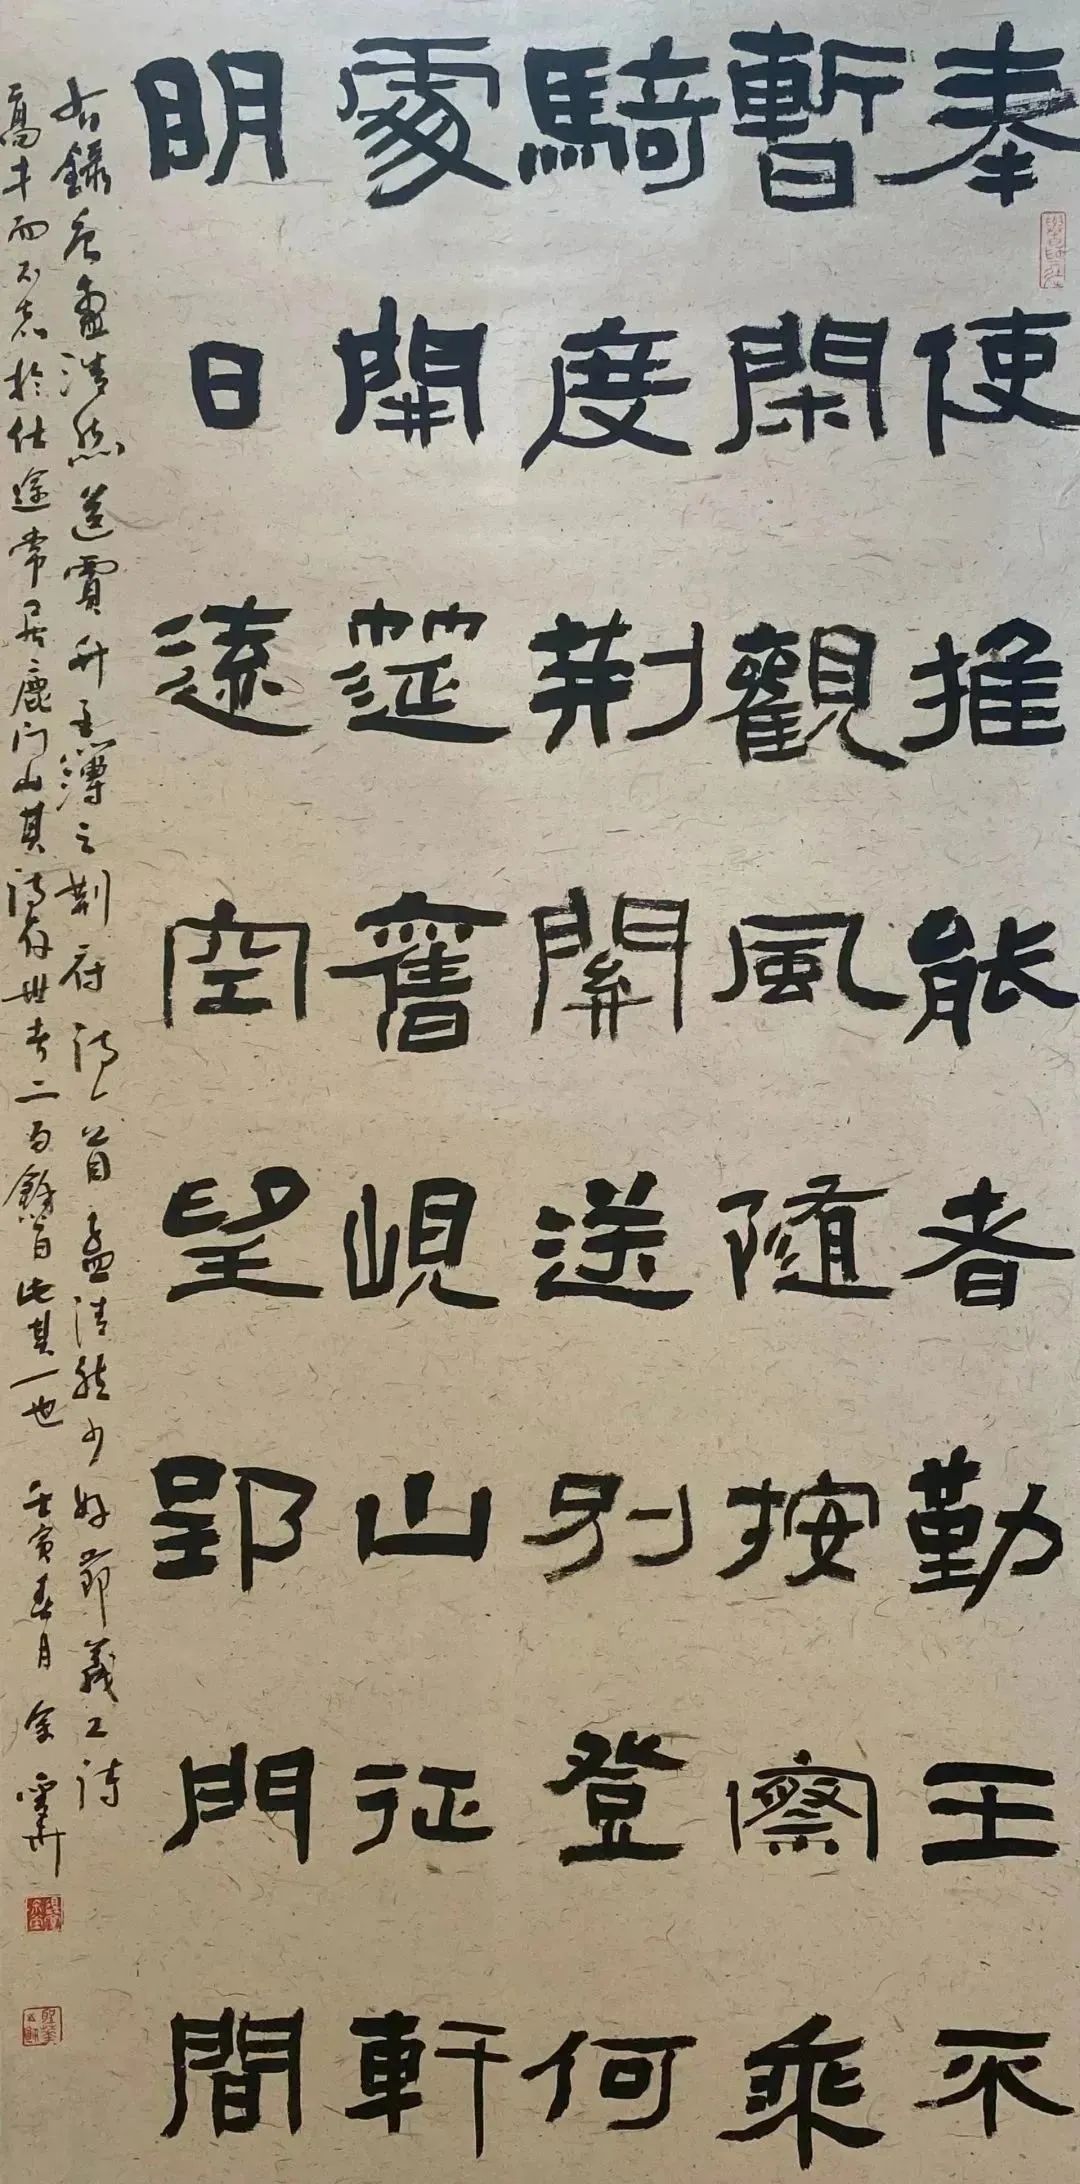 奉使推能者勤王不
暫閑觀風隨按察乘
騎度荆關送別登何
處開筵舊峴山征軒
明日遠空望郢門間
右錄唐孟浩然送賈升主簿之荆府詩一首孟浩然少好節義工詩
高才而不志於仕途常居鹿门山其詩存世者二百餘首此其一也 壬寅春月 余